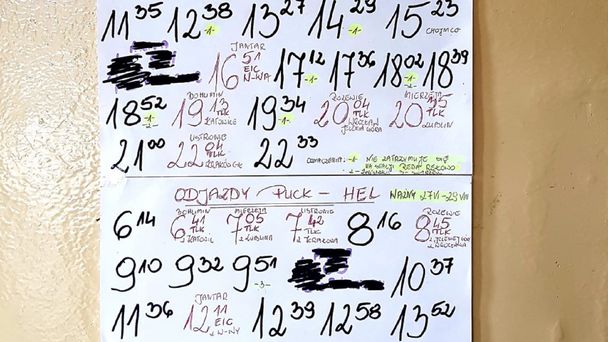 11 35 12 38 -1- 13 27 14 29 -1- 15 23 CHOJNICE
JANTAR
16 51 EIC W-WA 17 12 -1- 17 36 18 02 -1- 18 39
18 52 BOHUMIN 19 13 TLK KATOWICE 19 34 -1- ROZEWIE 20 04 TLK WROCŁAW JELENIA GÓRA MIERZEJA 20 45 TLK LUBLIN
21 00 USTRONIE 22 04 TLK KRAKÓW GŁ 22 33 OZNACZENIA: -1- NIE ZATRZYMUJE SIĘ
NA STACJI REDA REKOWO
ODJAZDY PUCK - HEL WAŻNY 27 VI - 29 VIII
6 14 BOHUMIN 6 41 TLK MIERZEJA 7 05 TLK Z LUBLINA USTRONIE 7 42 TLK Z KRAKOWA 8 16 ROZEWIE 8 45 TLK
9 10 9 32 9 51 -3- 10 37
11 36 JANTAR 12 11 EIC Z W-WY 12 39 12 58 13 52